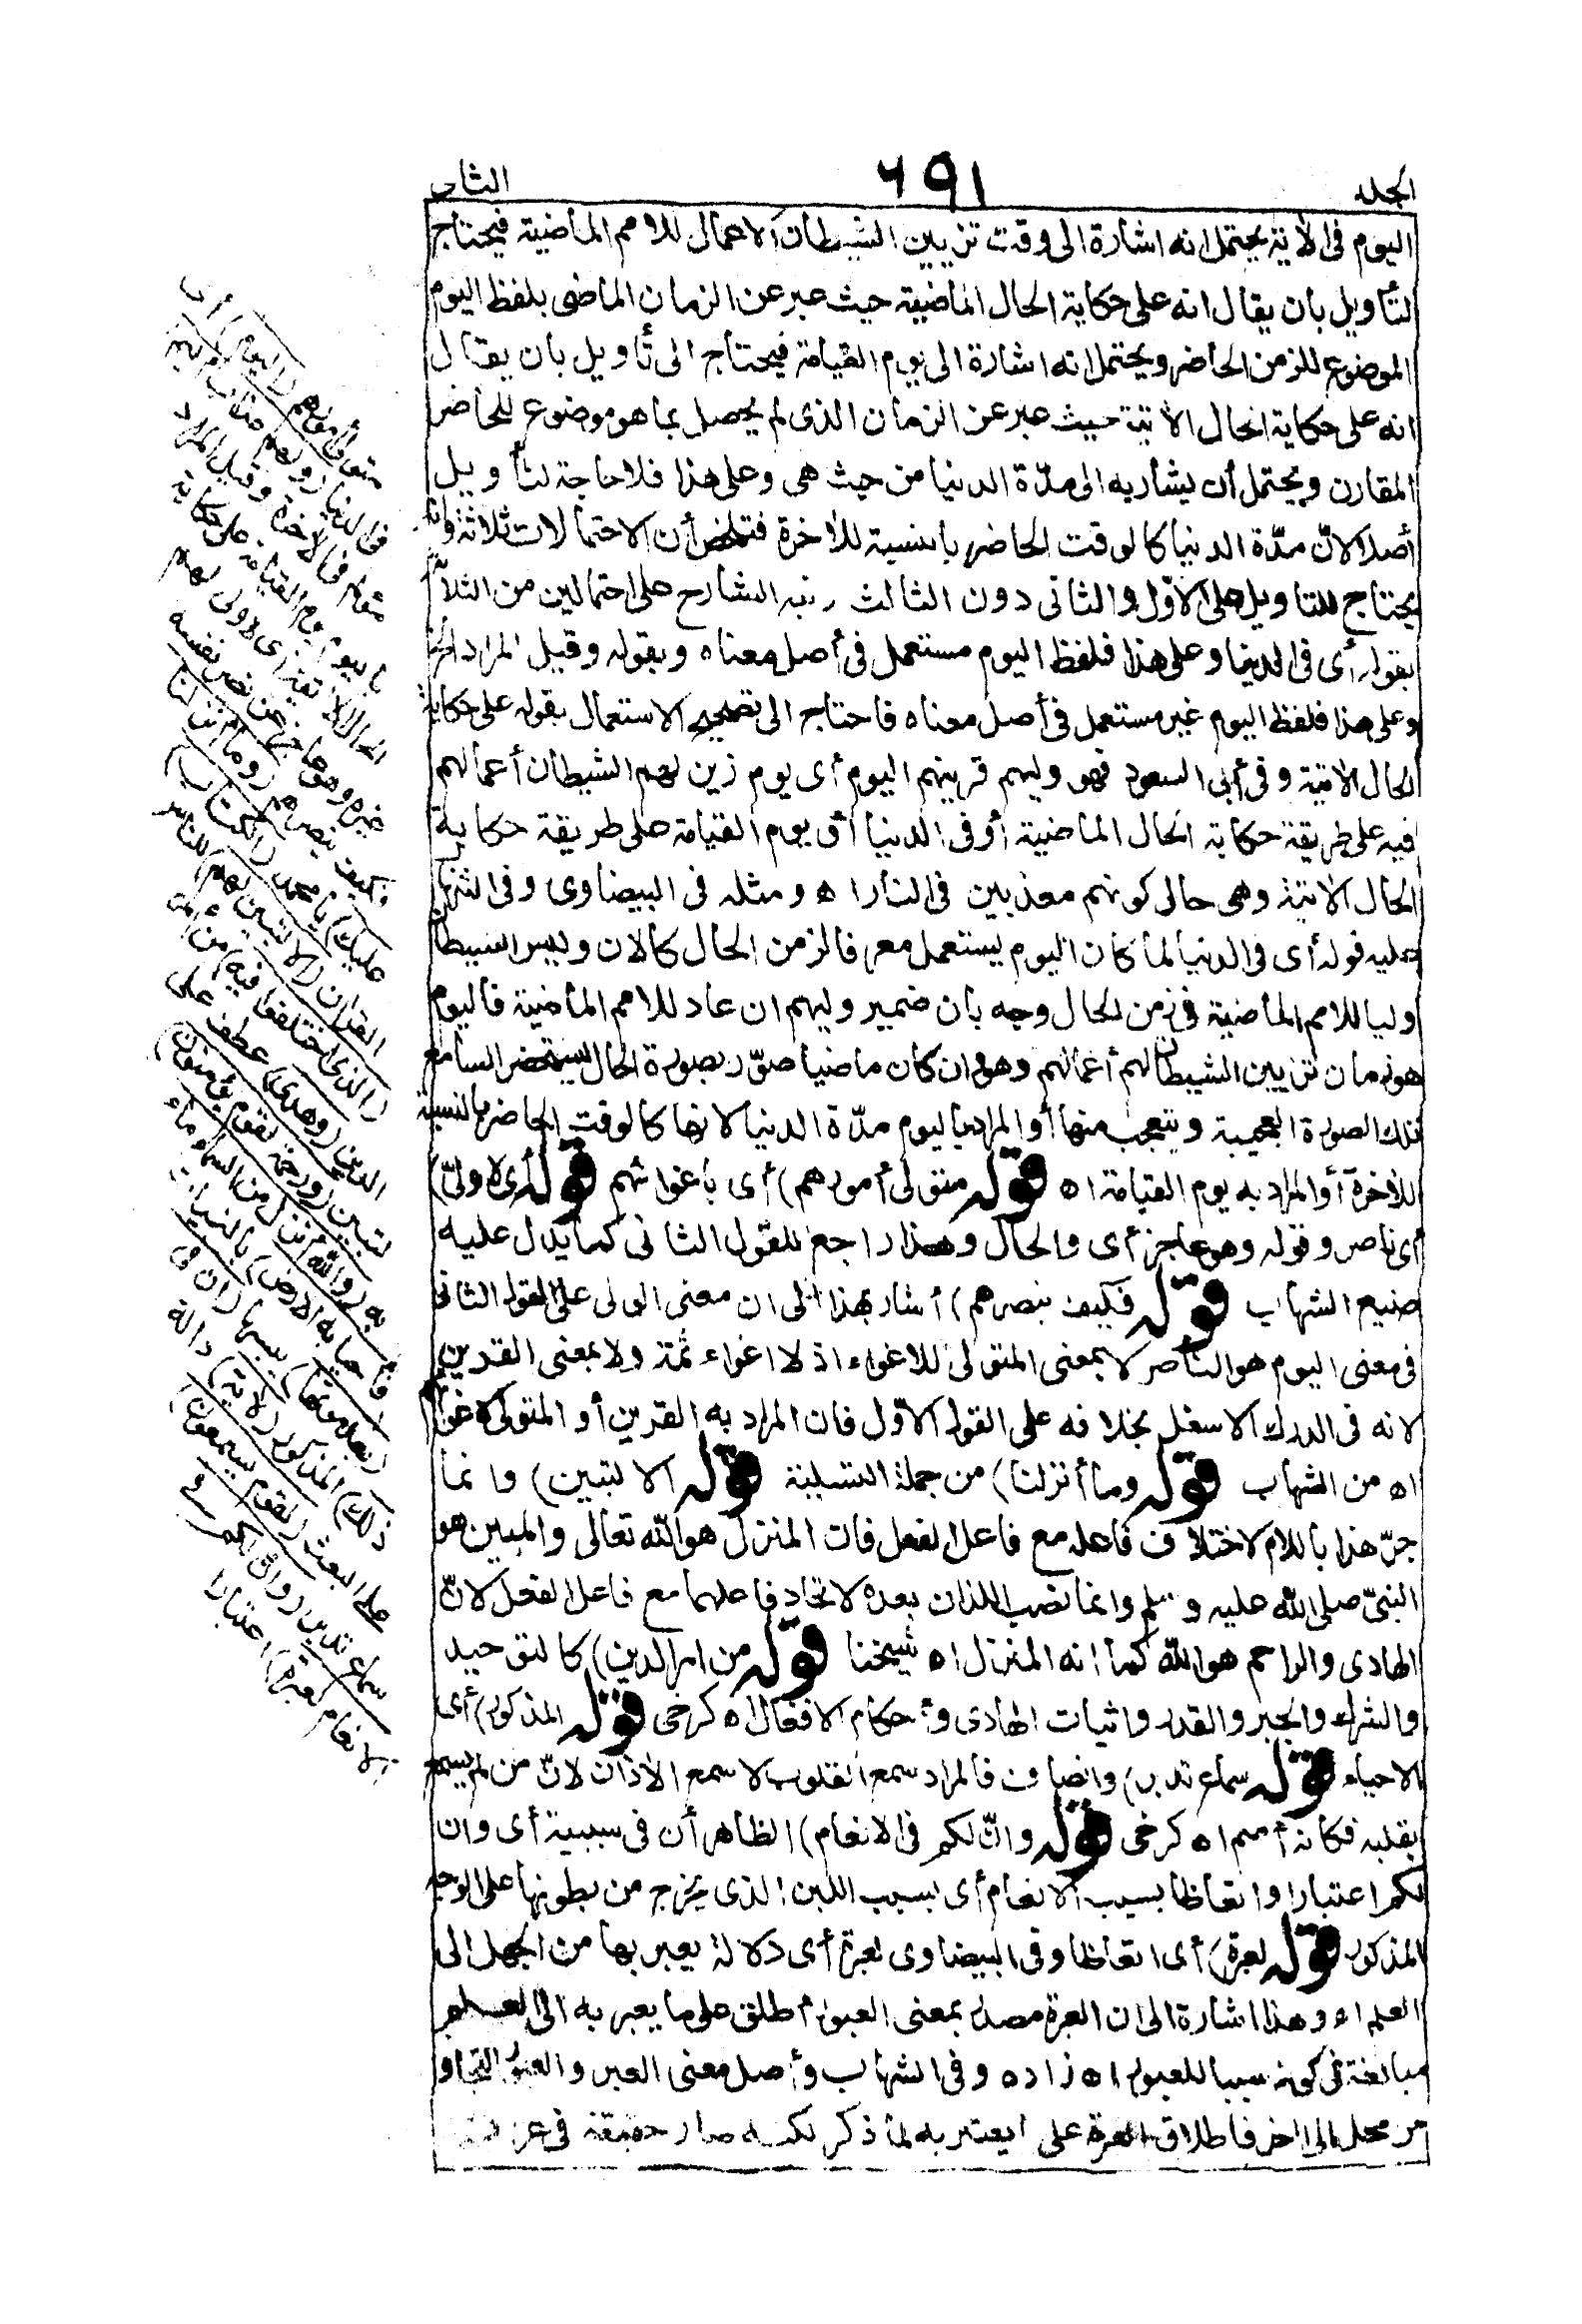 الجلد ٦٩١ الثانى
اليوم فى الآية يحتمل انه اشارة الى وقت تزيين الشيطان الاعمال للامم الماضية فيحتاج
لتأويل بان يقال انه على حكاية الحال الماضية حيث عبر عن الزمان الماضى بلفظ اليوم
الموضوع للزمن الحاضر ويحتمل انه اشارة الى يوم القيامة فيحتاج الى تأويل بان يقال
انه على حكاية الحال الآتية حيث عبر عن الزمان الذى لم يحصل بما هو موضوع للحاضر
المقارن ويحتمل أن يشار به الى مدّة الدنيا من حيث هى وعلى هذا فلا حاجة لتأويل
أصلا لانّ مدّة الدنيا كالوقت الحاضر بالنسبة للآخرة فتلخص أن الاحتمالات ثلاثة وانه
يحتاج للتاويل على الاوّل والثانى دون الثالث ونبه الشارح على احتمالين من الثلاثة
بقوله أى فى الدنيا وعلى هذا فلفظ اليوم مستعمل فى أصل معناه وبقوله وقيل المراد الخ
وعلى هذا فلفظ اليوم غير مستعمل فى أصل معناه فاحتاج الى تصحيح الاستعمال بقوله على حكاية
الحال الآتية وفى أبى السعود فهو وليهم قرينهم اليوم أى يوم زين لهم الشيطان أعمالهم
فيه على طريقة حكاية الحال الماضية أو فى الدنيا أو يوم القيامة على طريقة حكاية
الحال الآتية وهى حال كونهم معذبين فى النار اه ومثله فى البيضاوى وفى الشهاب
عليه قوله أى فى الدنيا لما كان اليوم يستعمل معرفا لزمن الحال كالآن وليس الشيطان
وليا للامم الماضية فى زمن الحال وجه بان ضمير وليهم ان عاد للامم الماضية فاليوم
هو زمان تزيين الشيطان لهم أعمالهم وهو وان كان ماضيا صوّر بصورة الحال ليستحضر السامع
تلك الصورة العجيبة ويتعجب منها أو المراد باليوم مدّة الدنيا لانها كالوقت الحاضر بالنسبة
للآخرة أو المراد به يوم القيامة اه قوله متولى أمورهم) أى باغوائهم قوله أى لا ولىّ)
أى ناصر وقوله وهو عاجز أى والحال وهذا راجع للقول الثانى كما يدل عليه
صنيع الشهاب قوله فكيف ينصرهم) أشار بهذا الى ان معنى الولى على القول الثانى
فى معنى اليوم هو الناصر لا بمعنى المتولى للاغواء اذ لا اغواء ثمة ولا بمعنى القرين
لانه فى الدرك الاسفل بخلافه على القول الاوّل فان المراد به القرين أو المتولى لاغوائهم
اه من الشهاب قوله وما أنزلنا) من جملة التسلية قوله الا لتبين) وانما
جرّ هذا باللام لاختلاف فاعله مع فاعل الفعل فان المنزل هو الله تعالى والمبين هو
النبىّ صلى الله عليه وسلم وانما نصب اللذان بعده لاتحاد فاعلهما مع فاعل الفعل لانّ
الهادى والراحم هو الله كما انه المنزل اه شيخنا قوله من امر الدين) كالتوحيد
والشرك والجبر والقدر واثبات الهادى وأحكام الافعال اه كرخى قوله المذكور) أى
الاحياء قوله سماع تدبر) وانصاف فالمراد سمع القلوب لا سمع الآذان لانّ من لم يسمع
بقلبه فكانه أصم اه كرخى قوله وانّ لكم فى الانعام) الظاهر أن فى سببية أى وان
لكم اعتبارا واتعاظا بسبب الانعام أى بسبب اللبن الذى يخرج من بطونها على الوجه
المذكور قوله لعبرة) أى اتعاظا وفى البيضاوى لعبرة أى دلالة يعبر بها من الجهل الى
العلم اه وهذا اشارة الى ان العبرة مصدر بمعنى العبور أطلق على ما يعبر به الى العلم
مبالغة فى كونه سببا للعبور اه زاده وفى الشهاب وأصل معنى العبر والعبور التجاوز
من محل الى آخر فاطلاق العبرة على ما يعتبر به لما ذكر لكنه صار حقيقة فى عرف
متولى أمورهم (اليوم) أى
فى الدنيا (ولهم عذاب أليم)
مؤلم فى الآخرة وقيل المراد
باليوم يوم القيامة على حكاية
الحال الآتية أى لا ولى لهم
غيره وهو عاجز عن نصر نفسه
فكيف ينصرهم (وما أنزلنا
عليك) يا محمد (الكتاب)
القرآن (الا لتبين لهم) للناس
(الذى اختلفوا فيه) من أمر
الدين (وهدى) عطف على
لتبين (ورحمة لقوم يؤمنون)
به (والله أنزل من السماء ماء
فأحيا به الارض) بالنبات
(بعد موتها) يبسها (ان فى
ذلك) المذكور (لآية) دالة
على البعث (لقوم يسمعون)
سماع تدبر (وان لكم فى
الانعام لعبرة) اعتبارا